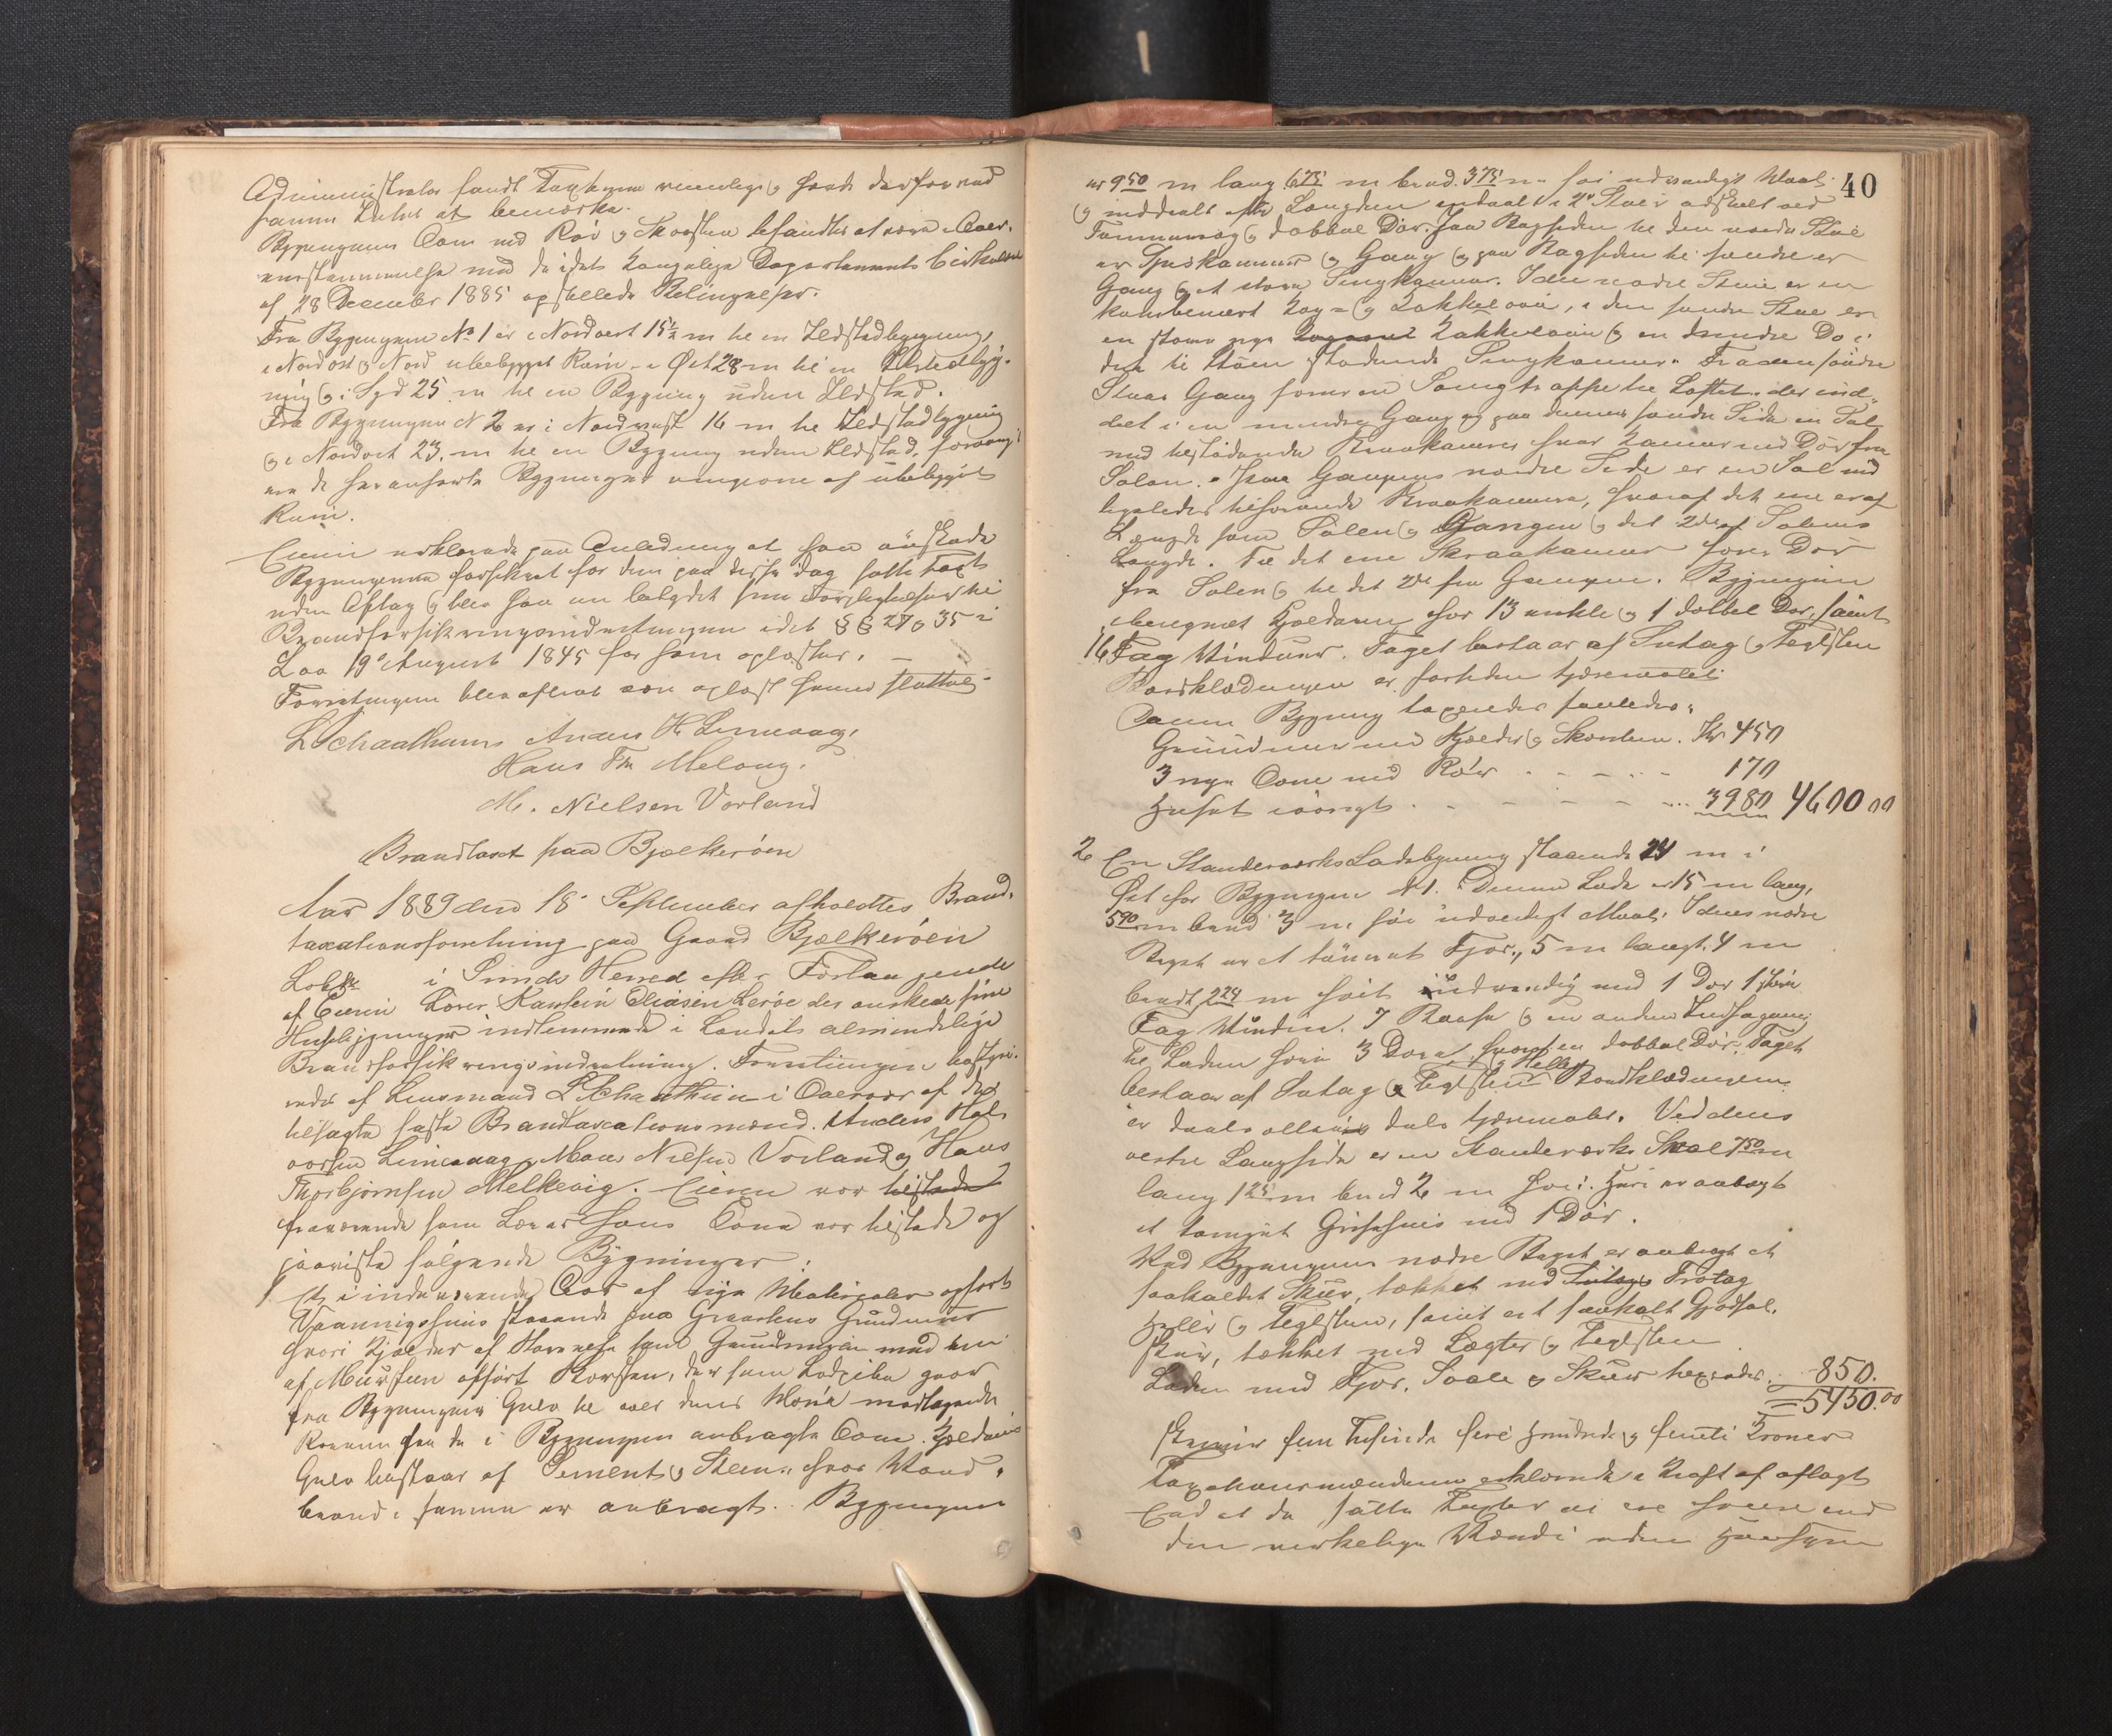 Administrator fandt Taxterne rimelige og havde derfor ved
samme Intet at bemærke.
Bygningens Ovne med Rør og Skorsten befandtes at være i Over-
ensstemmelse med de i det Kongelige Departements Cirkulære
af 28 December 1885 opstillede Betingelser.
Fra Bygningen No 1 er i Nordvest 15½ m til en Ildstedbygning,
i Nordost og Nord ubebygget Rum, i Øst 28 m til en Ildstedbyg-
ning og i Syd 25 m til en Bygning uden Ildsted.
Fra Bygningen N 2 er i Nordvest 16 m til Ildstedbygning
og i Nordost 23 m til en Bygning uden Ildsted, forøvrigt
ere de heranførte Bygninger omgivne af ubebygget
Rum.
Eieren erklærede paa Anledning at han ønskede
Bygningerne forsikret for den paa disse i dag satte Taxt
uden Aftag og blev han om betydet sine Forpligtelser til
Brandforsikringsindretningen i det §§ 27 og 35 i
Lov 19 August 1845 for ham oplæstes.
Forretningen blev afleveret som oplæst hermed sluttet.
L Schaathuns Anders H. Lemvaag,
Hans Th. Melvaag.
M. Nielsen Vorland
Brandtaxt paa Bjelkerøen
Aar 1889 den 18 September afholdtes Brand-
taxationsforretning paa Gaard Bjelkerøen
Løbe No i Finds Herred efter Forlangende
af Eieren Lærer Karstein Eliasen Lerøe der ønskede sine
Husbygninger indlemmede i Landets almindelige
Brandforsikringsindretning. Forretningen bestyre-
redes af Lensmand L Schaathun i Overvær af de
tilsagte faste Brandtaxationsmænd Anders Hal-
vorsen Lemvaag, Mons Nielsen Vorland og Hans
Thorbjørnsen Melkevig. Eieren var tilstede
fraværende som Lærer hans Kone var tilstede og
paaviste følgende Bygninger:
1 Et i indeværende Aar af nye Materialer opført
Vaaningshus staaende paa Graastens Grundmur
hvori Kjelder af Størrelse som Grundmuren med en
af Mursten opført Skorsten, der som Lodpibe gaar
fra Bygningens Gulv til over dens Møne modtagende
Rørene fra de i Bygningen anbragte Ovne. Kjelderens
Gulv bestaar af Cement og Steen, hvor Vand-
brønd i samme er anbragt. Bygningen
40
er 9 50 m lang 6 75 m bred 3 75 m høi udvendigt Maal
og inddeelt efter Længden i 2 Stuer adskilt ved
Tømmervæg og dobbel Dør. Paa Bagsiden til den nordre Stue
er Spiskammer og Gang og paa Bagsiden til søndre er
Gang og et større Sengkammer. I den nordre Stue er en
kombineret Kog- og Kakkelovn, i den søndre Stue er
en større nye Kakkelovn og en mindre Do i
det til Stuen stødende Sengkammer. Fra den søndre
Stues Gang fører en Svingtrappe til Loftet der ind-
delt i en mindre Gang og paa dennes søndre Side en Sal
med tilstødende Kraakammer hver Kammer med Dør fra
Salen. Paa Gangens nordre Side er en Sal med
ligeledes tilhørende Kraakammer, hvoraf det ene er af
Længde som Salen og Gangen og det 2det af Salens
Længde. Til det ene Skraakammer fører Dør
fra Salen og til det 2det fra Gangen. Bygningen
iberegnet Kjelderen har 13 enkle og 1 dobbel Dør, samt
16 Fag Vinduer. Taget bestaar af Sutag og Teglsten
Bordklædningen er forsiden tjæremalet
Denne Bygning taxeredes saaledes:
Grundmur med Kjelder og Skorsten Kr 450
3 nye Ovne med Rør 170
Huset iøvrigt 3980 4600 00
2 En Standerværks Ladebygning staaende 24 m i
Øst for Bygningen N 1. Denne Lade er 15 m lang,
5 90 m bred 3 m høi udvendigt Maal. I dens nordre
Part er et tømret Fjøs, 5 m langt, 4 m
bredt, 2 24 m høit indvendig med 1 Dør 1
Fag Vindu. 7 Baase og en anden Indhegning
Til Laden hører 3 Døre hvoraf en dobbel Dør. Taget
bestaar af Sutag og Teglsten og Heller Bordklædningen
er deels oliemalet deels tjæremalet. Ved dens
vestre Langside er en Standerværks Sval 7 50 m
lang 1 25 m bred 2 m høi. Heri er anbragt
et tømret Grisehus med 1 Dør.
Ved Bygningens nordre Part er anbragt et
saakaldet Skur, tækket med Sutag Trotag
Heller og Teglsten, samt et saakalt Gjødsel-
skur, tækket med Lægter og Teglsten
Laden med Fjøs, Svale og Skur taxeredes 850.
5450.00
Skriver fem Tusinde fire Hundrede og femti Kroner
Taxationsmændene erklærede i Kraft af aflagt
Eed at de satte Taxter ei ere høiere end
den virkelige Værdi uden Hensyn